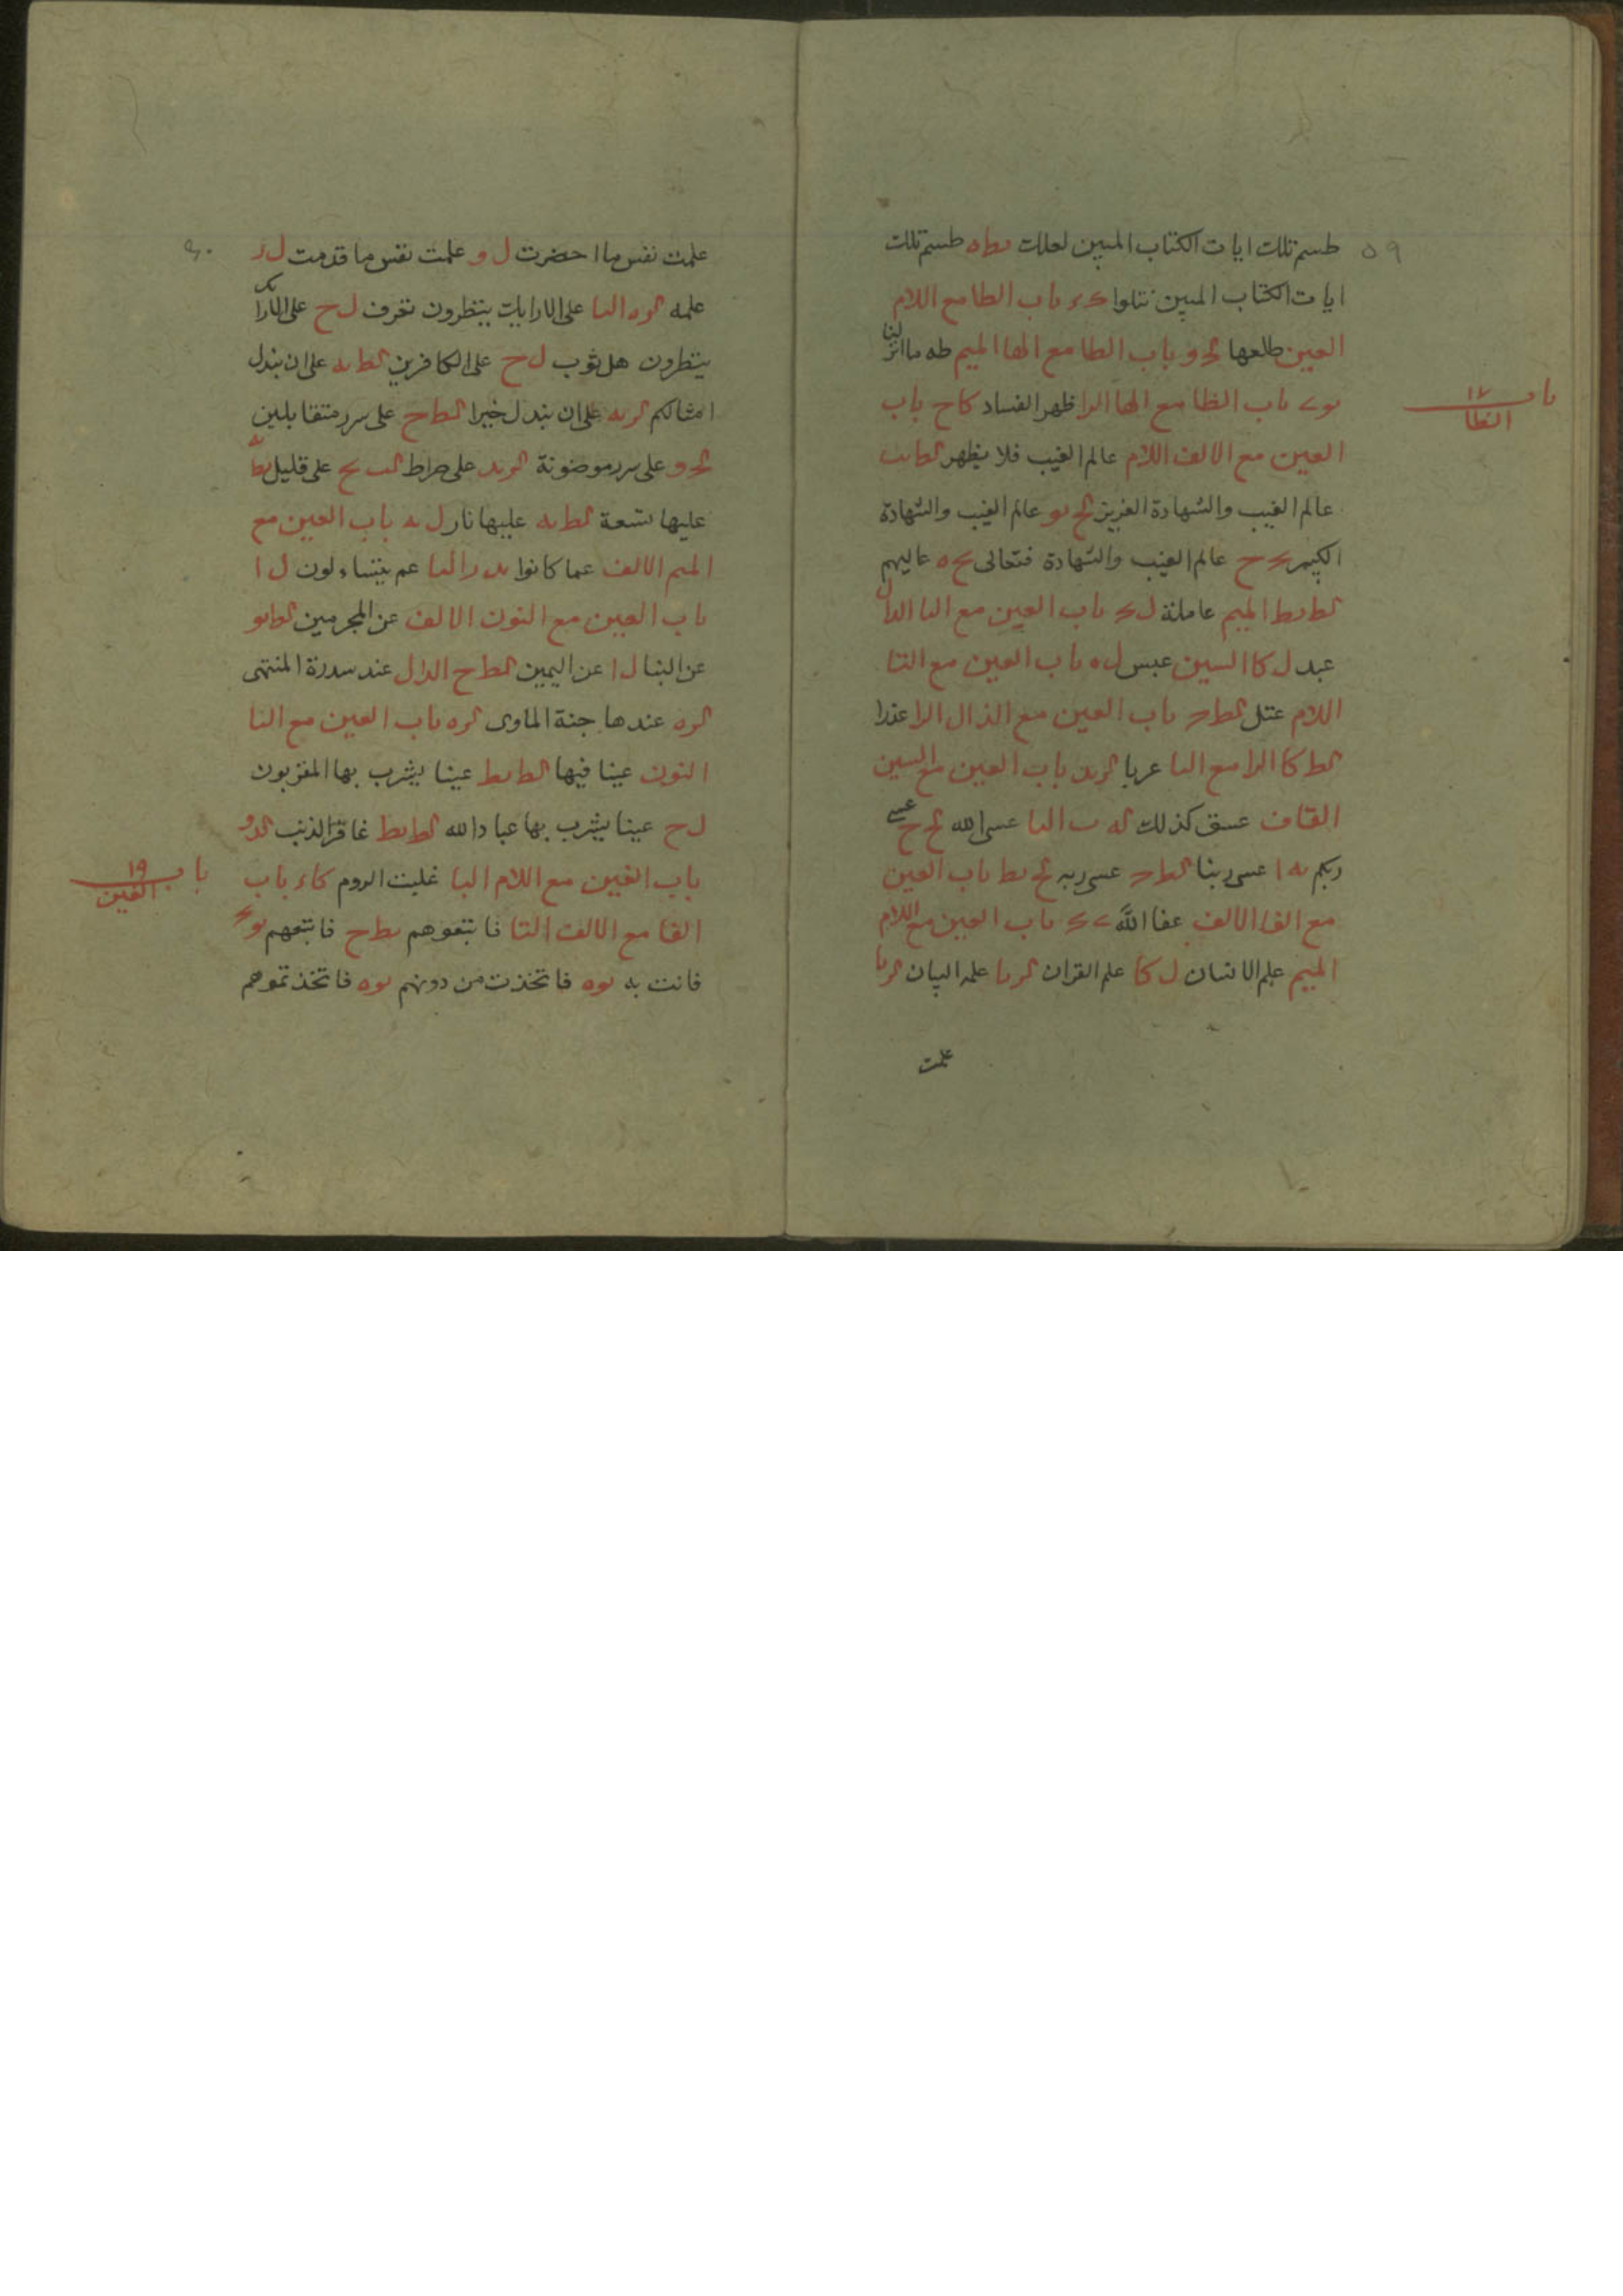 ٥٩
طسم تلك ايات الكتاب المبين لعلك بط ه طسم تلك
ايات الكتاب المبين نتلوا ك ء باب الطا مع اللام
العين طلعها لح و باب الطا مع الها الميم طه ما انزلنا
باب ١٧ الظا
باب الظا مع الها الرا ظهر الفساد كا ح باب
العين مع الالف اللام عالم الغيب فلا يظهر
عالم الغيب والشهادة العزيز لح نو عالم الغيب والشهادة
الكبير ح عالم الغيب والشهادة فتعالى ح ه عاليهم
لط نط الميم عاملة ل باب العين مع البا الدال
عبد ل كا السين عبس ل ه باب العين مع التا
اللام عتل لط باب العين مع الذال الرا عذرا
لط كا الرا مع البا عربا باب العين مع السين
القاف عسق كذلك له ب اليا عسى الله لح ح عسى
ربكم نه ا عسى ربنا لط عسى ربه لح نط باب العين
مع الفا الالف عفا الله باب العين مع اللام
الميم علم الانسان ل كا علم القران لر نا علمه البيان لر نا
علمت
٦٠
علمت نفس ما احضرت ل و علمت نفس ما قدمت ل ر
علمه لر ه اليا على الارايك ينظرون تعرف ل ح على الارايك
ينظرون هل ثوب ل ح على الكافرين لط نه على ان نبدل
امثالكم لر نه على ان نبدل خيرا لط ح على سرر متقابلين
لح و على سرر موضونة لر ند على صراط على قليل
عليها تسعة لط نه عليها نار ل نه باب العين مع
الميم الالف عما كانوا ند را اليا عم يتساءلون ل ا
باب العين مع النون الالف عن المجرمين لط نو
عن النبا ل ا عن اليمين لط ح الدال عند سدرة المنتهى
لر ه عندها جنة الماوى لر ه باب العين مع اليا
النون عينا فيها لط نط عينا يشرب بها المقربون
ل ح عينا يشرب بها عباد الله لط نط غافر الذنب لد و
باب ١٩ الغين
باب الغين مع اللام البا غلبت الروم كا ء باب
الفا مع الالف التا فاتبعوهم نط ح فاتبعهم
فاتت به نو ه فاتخذت من دونهم نو ه فاتخذتموهم